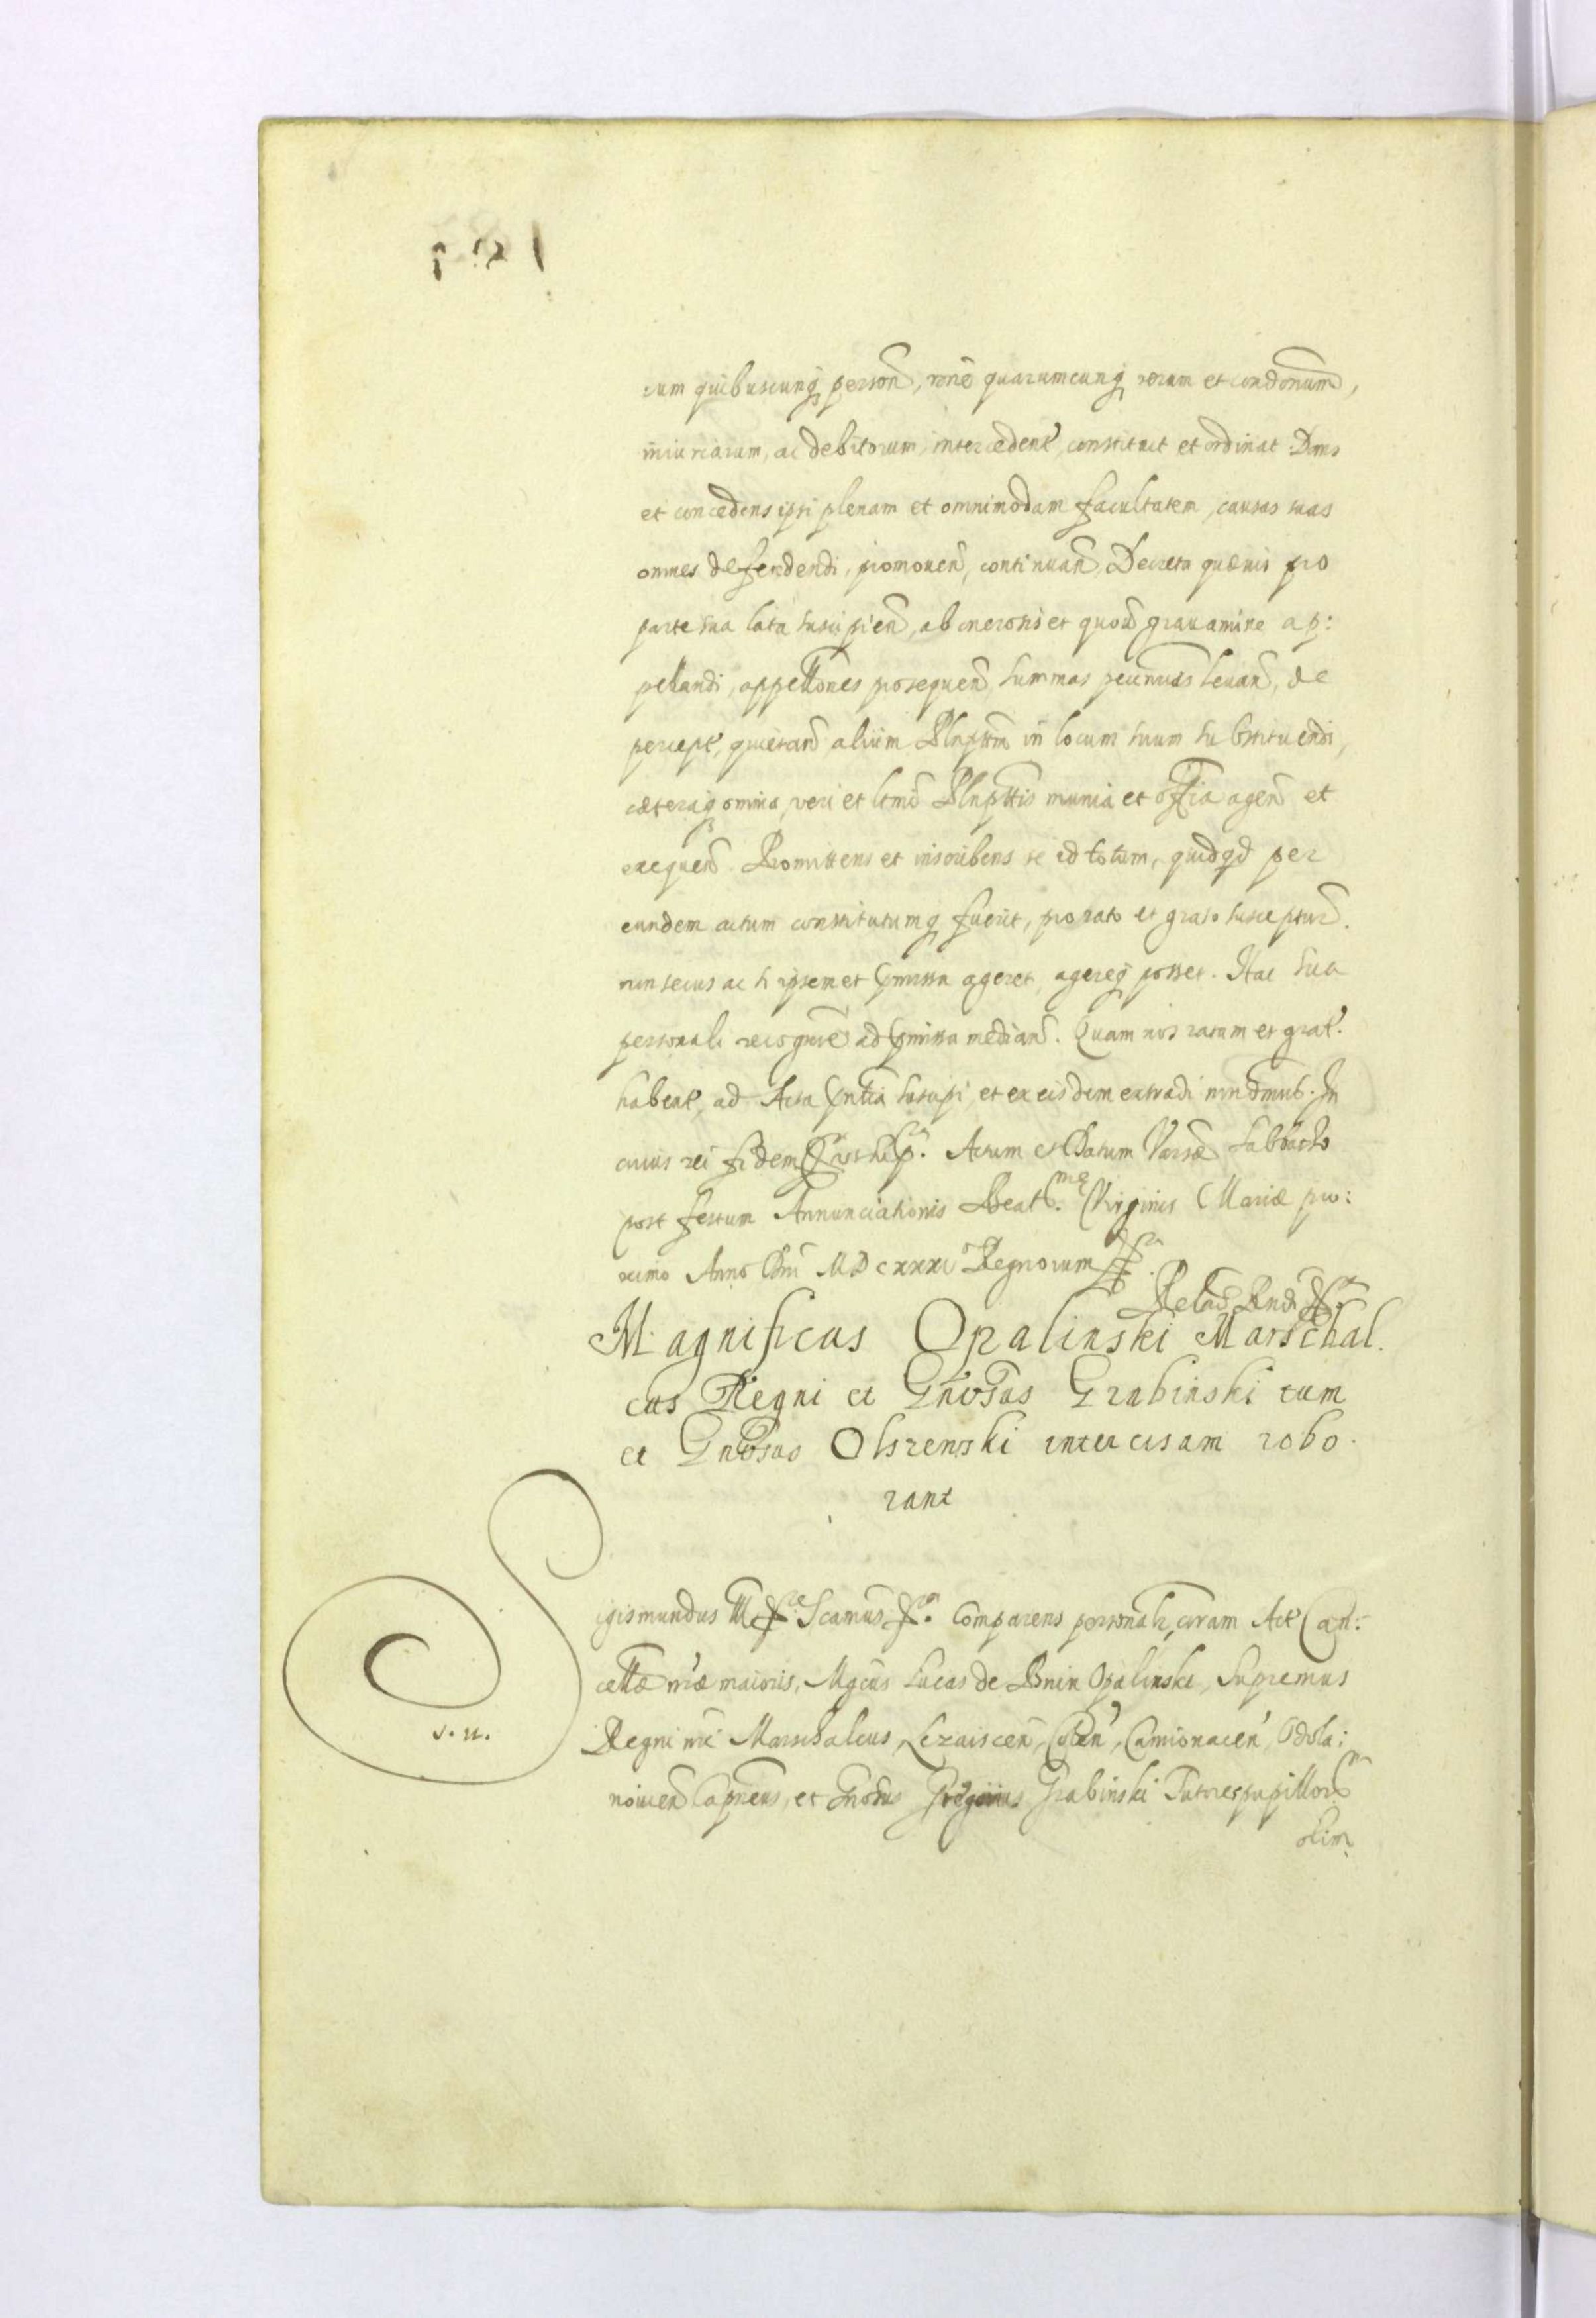 cum quibuscunq, person, rone quarumcunq rerum et condonum,
iniuriarum, ac debitorum, intercedent, constituit et ordinat. Dans
et concedens ipsi plenam et omnimodam facultatem, causas suas
omnes defendendi, promouen, continuan, Decreta quævis pro
parte sua lata suscipien, ab onerosis et quovis gravamine ap:
pellandi, appellones prosequen, summas pecunias levan, de
percept, quietan, alium Plnpttm in locum suum substituendi,
cæteraq omnia, veri et ltmi Plnpttis munia et offia agen et
exequen. Promittens et inscribens se id totum, quidqd per
eundem actum constitutumq fuerit, pro rato et grato suscepturm.
non secus ac si ipsemet pmissa ageret, agereq posset. Hac sua
personali recognone ad pmissa median. Quam nos ratam et grat.
habent, ad Acta pntia suscipi, et ex eisdem extradi mndmus. In
cuius rei fidem pntibus. Actum et Datum Varsæ Sabbatho
post festum Annunciationis Beatmæ Virginis Mariæ pro:
ximo Anno Dni MDCXXXI Regnorum
Relao Rndi
Magnificus Opalinski Marschal.
cus Regni et Gnosus Grabinski tum
et Gnosus Olszenski intercisam robo.
rant
Sigismundus III Scamus Comparens personalr, coram Act Can:
cellæ nræ maioris, Mgcus Lucas de Bnin Opalinski, Supremus
Regni nri Marschalcus, Lezaiscen, Colen, Camionacen, Odola:
novien Capneus, et Gnosus Gregorius Grabinski Tutores pupillorum
olim
s. n.